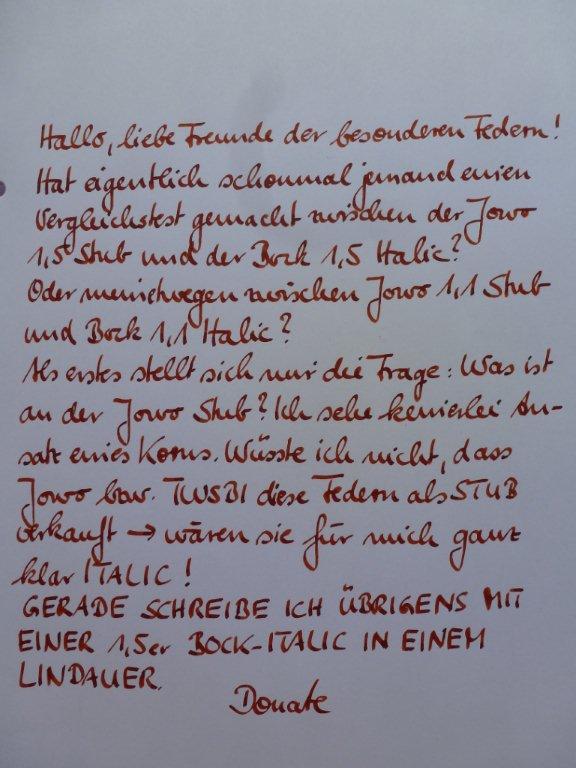 Hallo, liebe Freunde der besonderen Federn!
Hat eigentlich schonmal jemand einen
Vergleichstest gemacht zwischen der Jowo
1,5 Stub und der Bock 1,5 Italic?
Oder meinetwegen zwischen Jowo 1,1 Stub
und Bock 1,1 Italic?
Als erstes stellt sich mir die Frage: Was ist
an der Jowo Stub? Ich sehe keinerlei An-
satz eines Korns. Wüsste ich nicht, dass
Jowo bzw. TWSBI diese Federn als STUB
verkauft → wären sie für mich ganz
klar ITALIC!
GERADE SCHREIBE ICH ÜBRIGENS MIT
EINER 1,5er BOCK-ITALIC IN EINEM
LINDAUER.
Donate